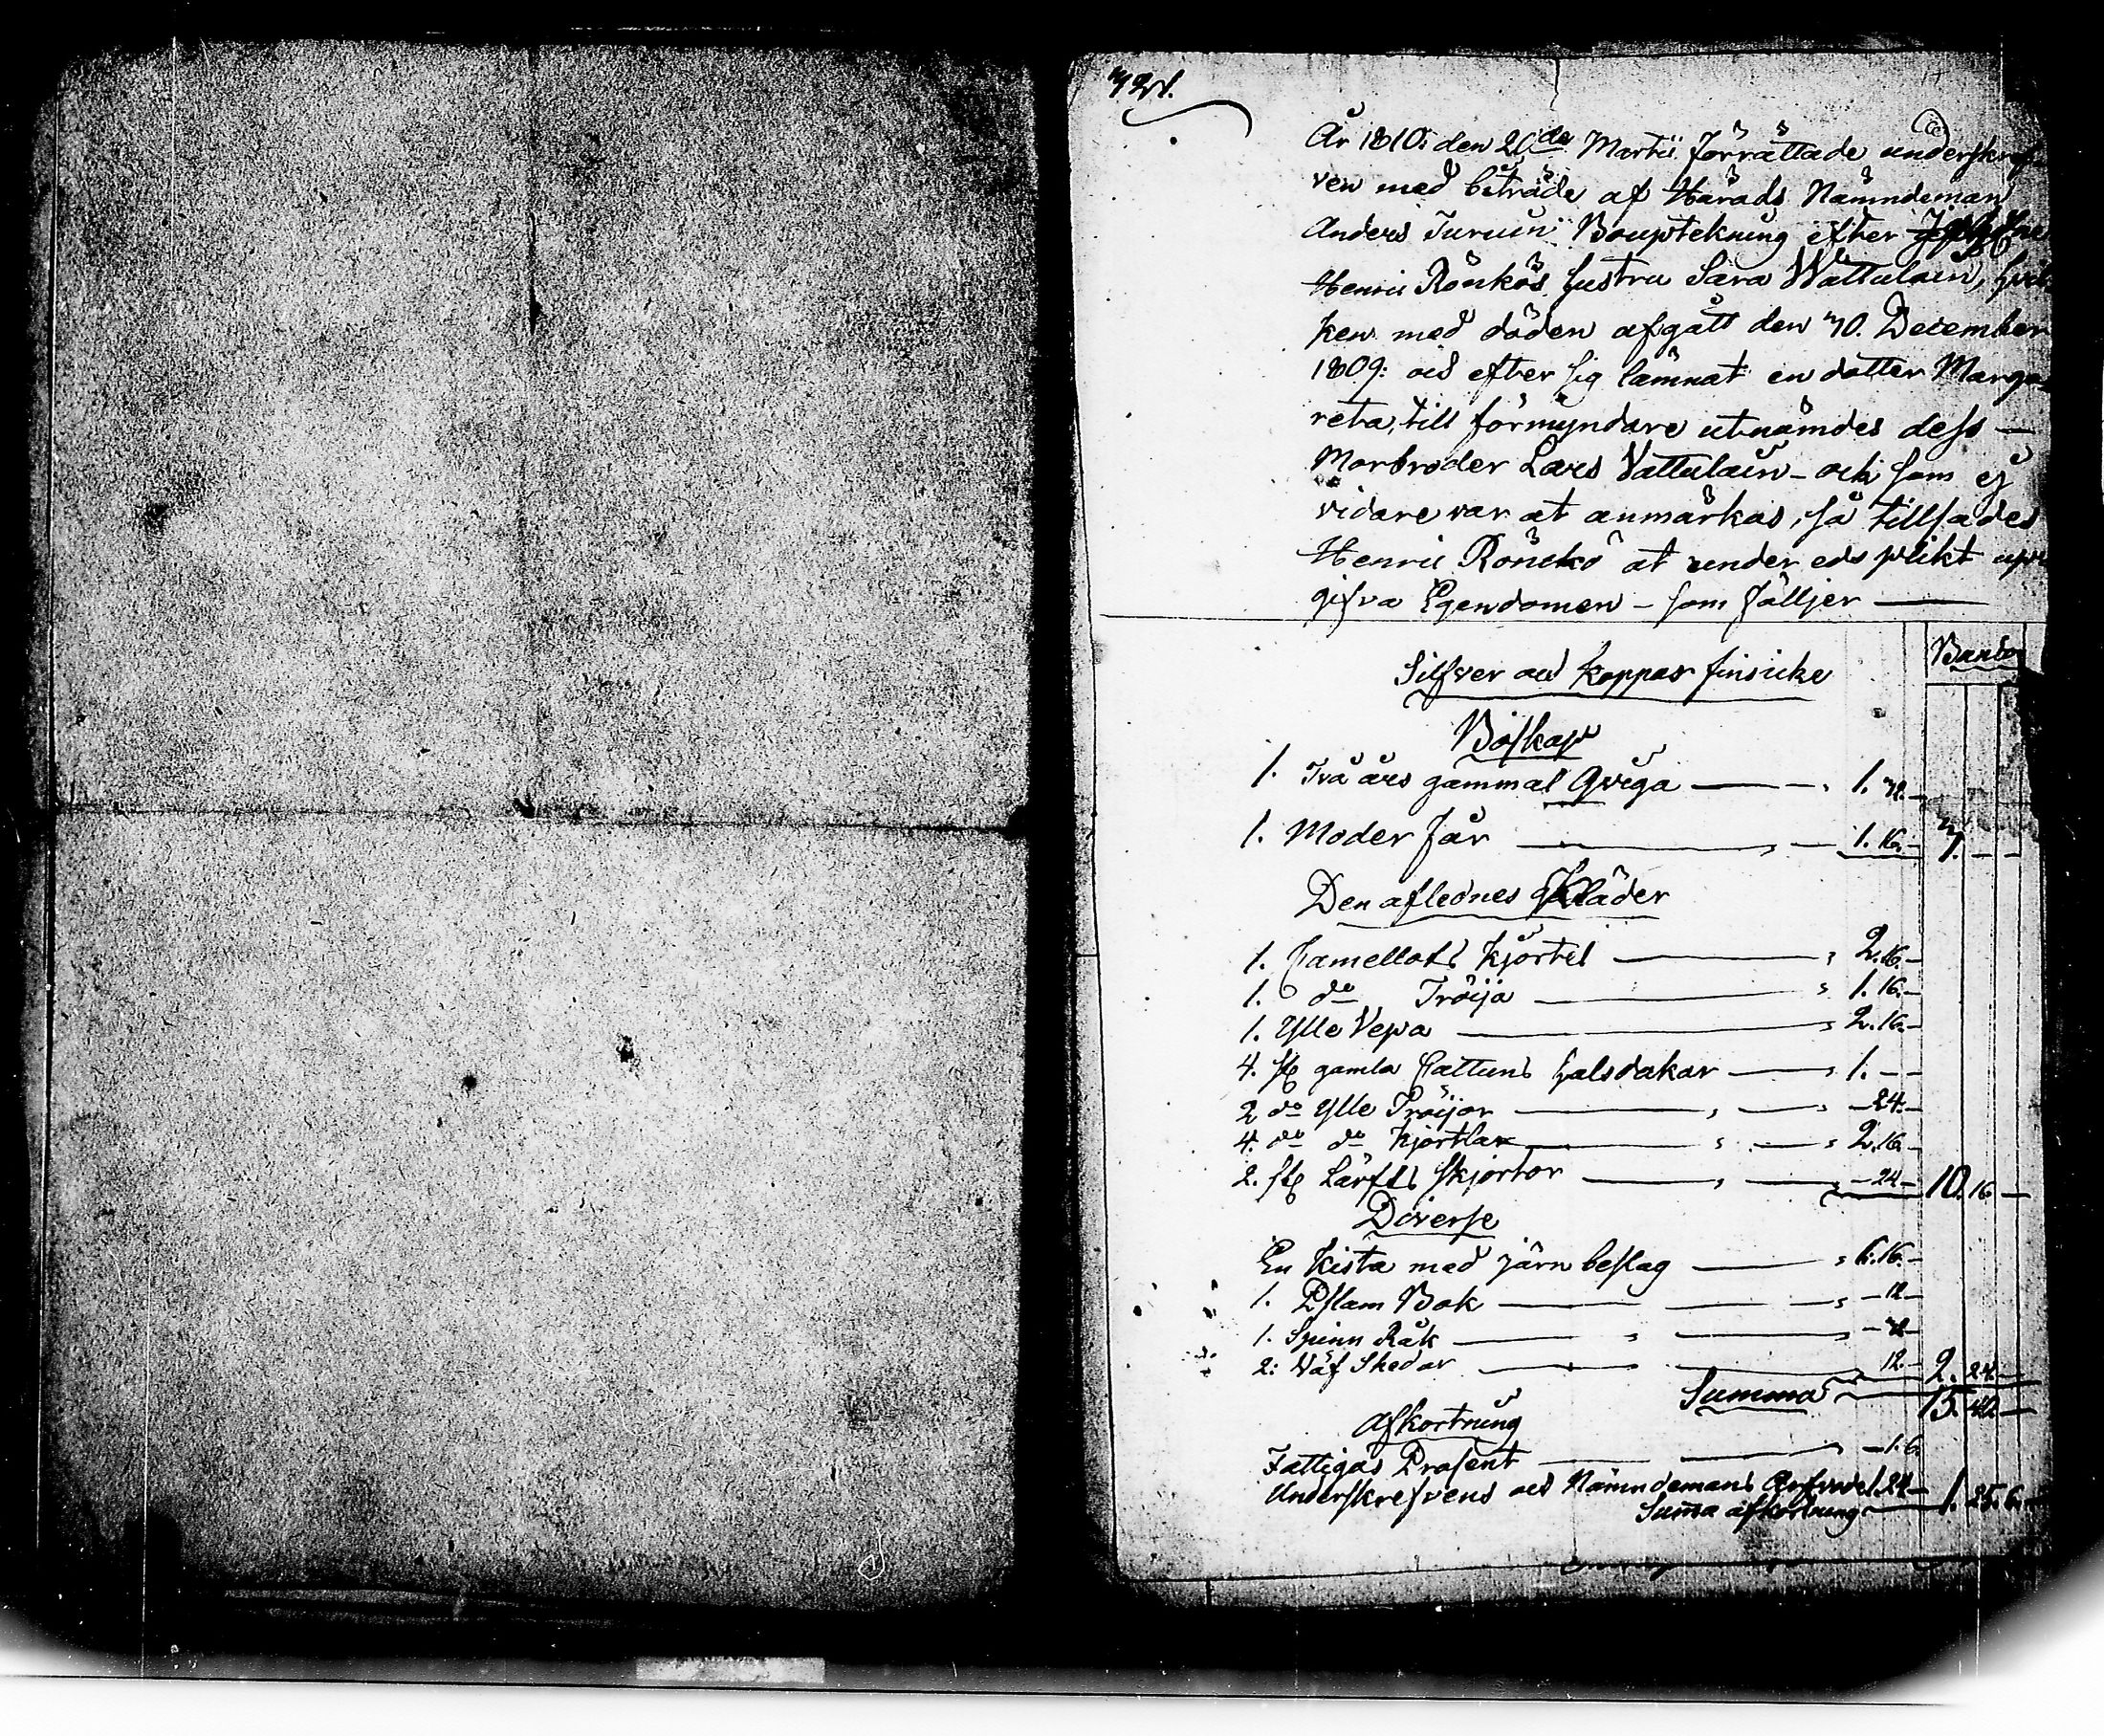 År 1810: den 20de Martii förrättade underskref
ven med biträde af Härads Nämndeman
Anders Turuin Bouptekning efter
Henric Rönkös hustru Sara Wattulain, hvil
ken med döden afgått den 30. December
1809: och efter sig lämnat en dotter Marga
reta, till förmyndare utnämdes dess —
Morbroder Lars Vattulain - och som ej
vidare var at anmärkas, så tillsades
Henric Rönckö at under eds plikt upp
gifva Egendomen - som fölljer —
Banco
Silfver och Koppar finsicke
Boskap
1. Två års gammal Qviga — 1. 32.
1. Moder Får — 1. 16. — 3. — —
Den aflednes Kläder
1. Camellots kjortel — 2. 16. —
1. do Tröija — 1. 16. —
1. Ylle Vepa — 2. 16. —
4. st gamla Cattuns halsdukar — 1. — —
2 do Ylle Tröijor — 24. —
4. do do kjortlar — 2. 16. —
2. st Lärfts skjortor — 24 — 10. 16 —
Diverse
En kista med järn beslag — 1. 16. —
1. Pslam Bok — 12 —
1. Spinn Råk — 32 —
2: Väf Skedar — 12. — 2. 24. —
Summa — 15. 40. —
Afkortning
Fattigas Prosent — 1. 6.
Underskrefvens och Nämndemans Arfvode 1. 24 —
Suma afkortning — 1. 25. 6.